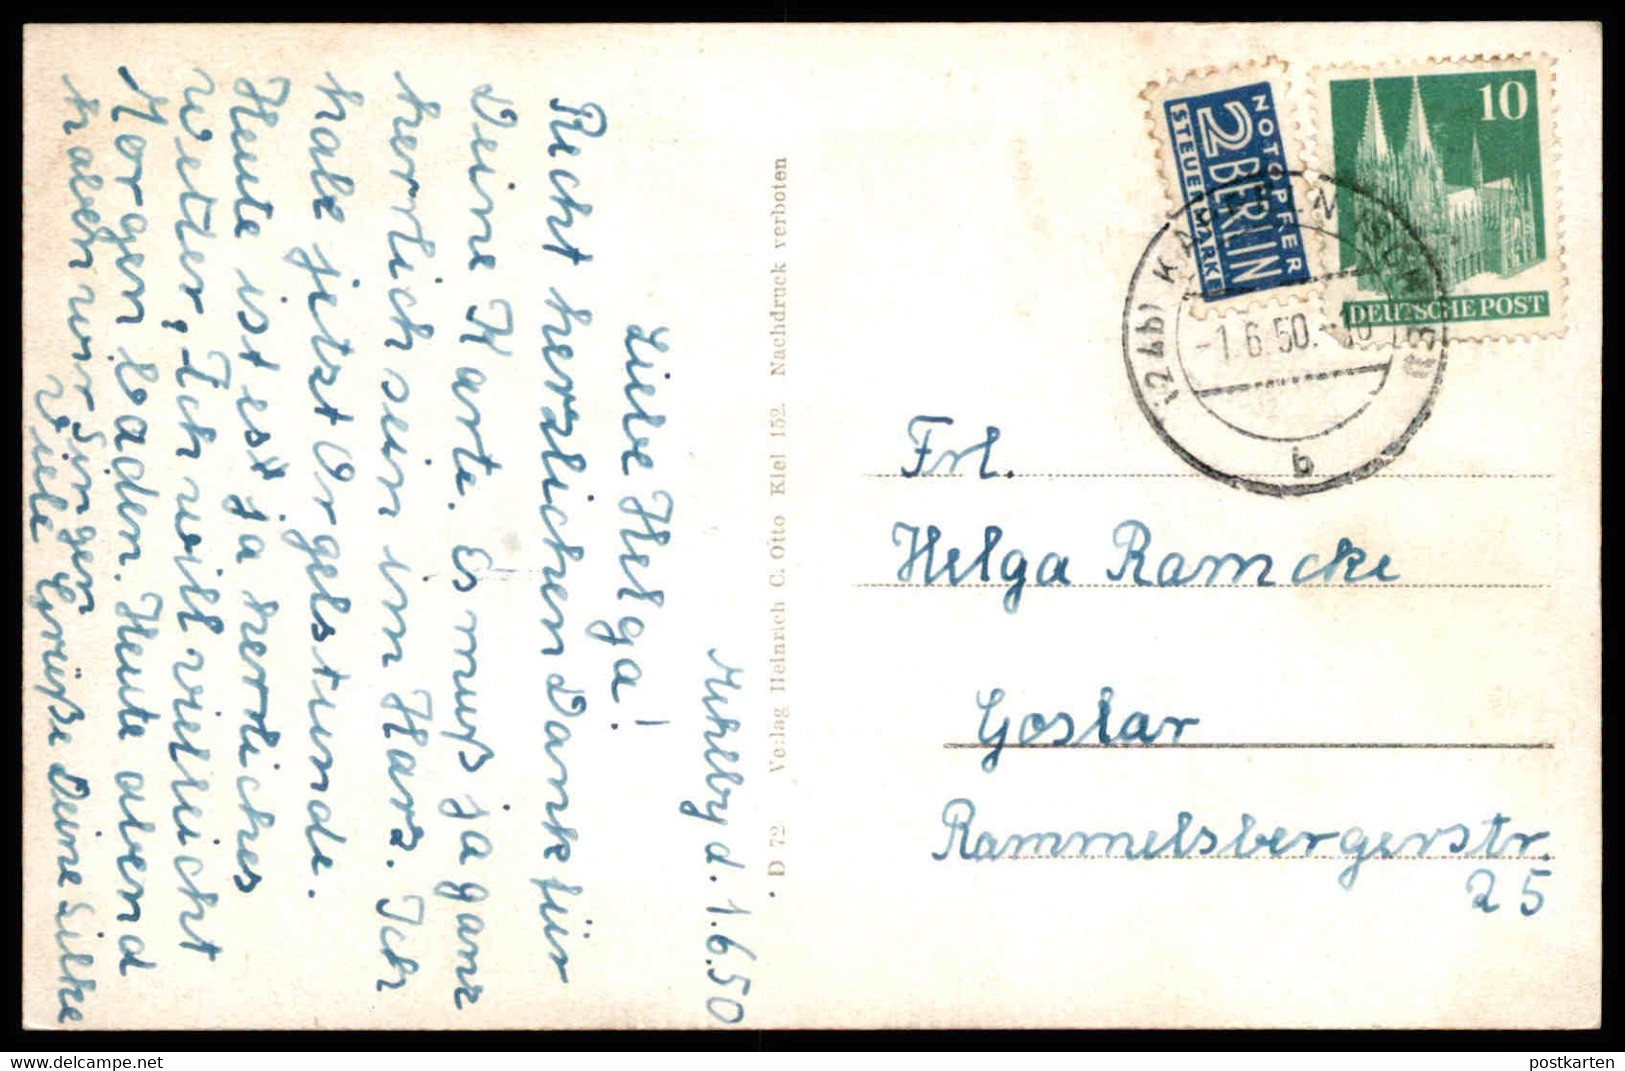 Mehlby d. 1.6.50
Liebe Helga!
Recht herzlichen Dank für
Deine Karte. Es muß ja ganz
herrlich sein im Harz. Ich
habe jetzt Orgelstunde.
Heute ist es ja herrliches
Wetter, Ich will vielleicht
Morgen baden. Heute abend
haben wir Singen
Viele Grüße Deine Silke
D 72 Verlag Heinrich C. Otto Kiel 152. Nachdruck verboten
NOTOPFER
2 BERLIN
STEUERMARKE
10
DEUTSCHE POST
(24b) KAPPELN
-1.6.50.-18
b
Frl.
Helga Ramcke
Goslar
Rammelsbergerstr.
25
delcampe.net
postkarten